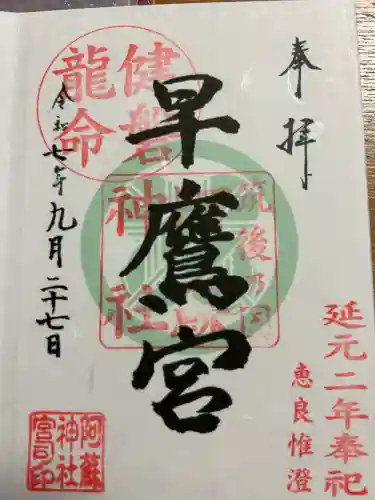 奉拝
延元二年奉祀
恵良惟澄
早鷹宮
健磐
龍命
筑後乃国
神社
令和七年九月二十七日
阿蘇
神社
宮司印